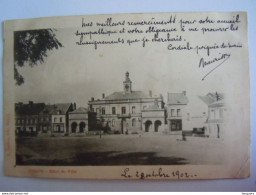 Mes meilleurs remerciements pour votre accueil
sympathique et votre obligeance à me procurer les
renseignements que je cherchais.
Cordiale poignée de main
Le 2 Octobre 1902